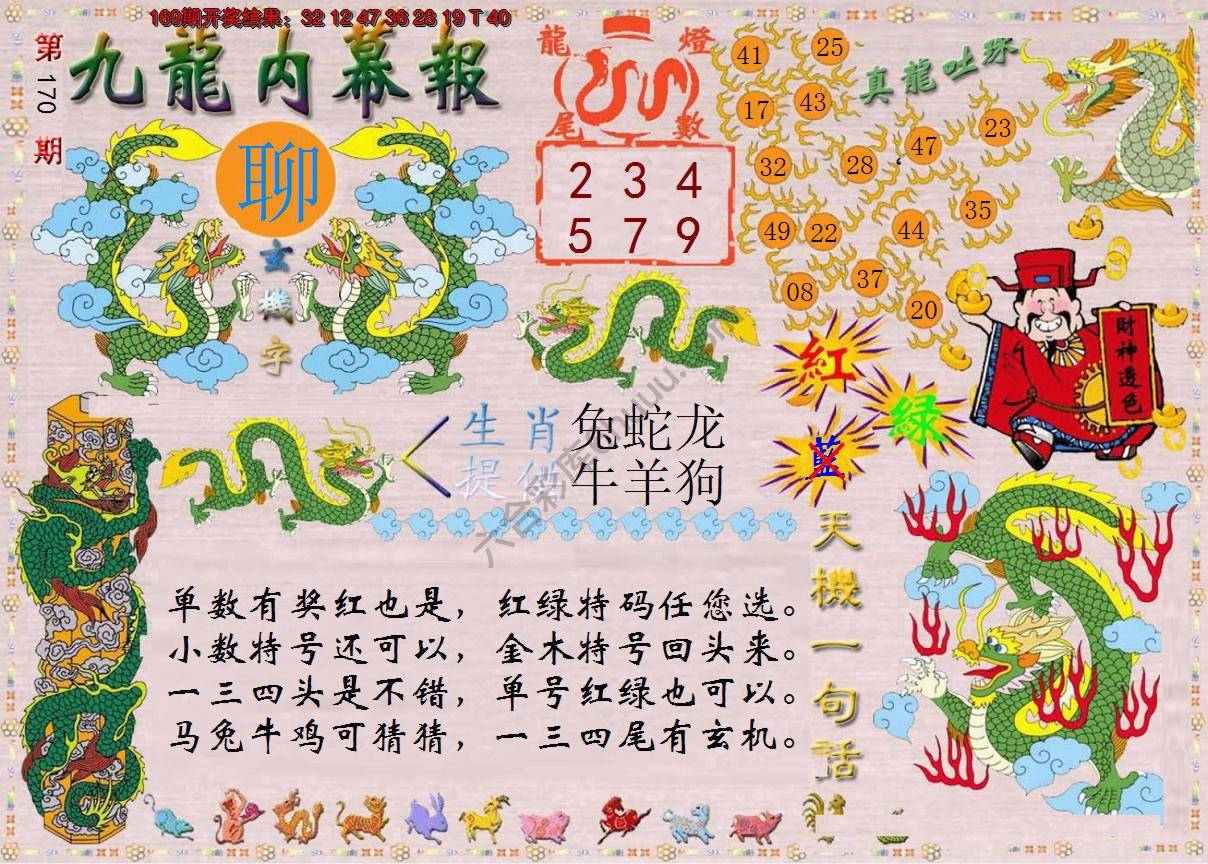 169期开奖结果：32 12 47 36 28 19 T 40
第170期
九龍内幕報
聊
玄機字
龍燈
尾數
2 3 4
5 7 9
真龍吐珠
41 25
17 43
32 28 47 23
49 22 44 35
08 37 20
紅
綠
藍
財神透色
生肖
提供
兔蛇龙
牛羊狗
天機一句话
单数有奖红也是，红绿特码任您选。
小数特号还可以，金木特号回头来。
一三四头是不错，单号红绿也可以。
马兔牛鸡可猜猜，一三四尾有玄机。